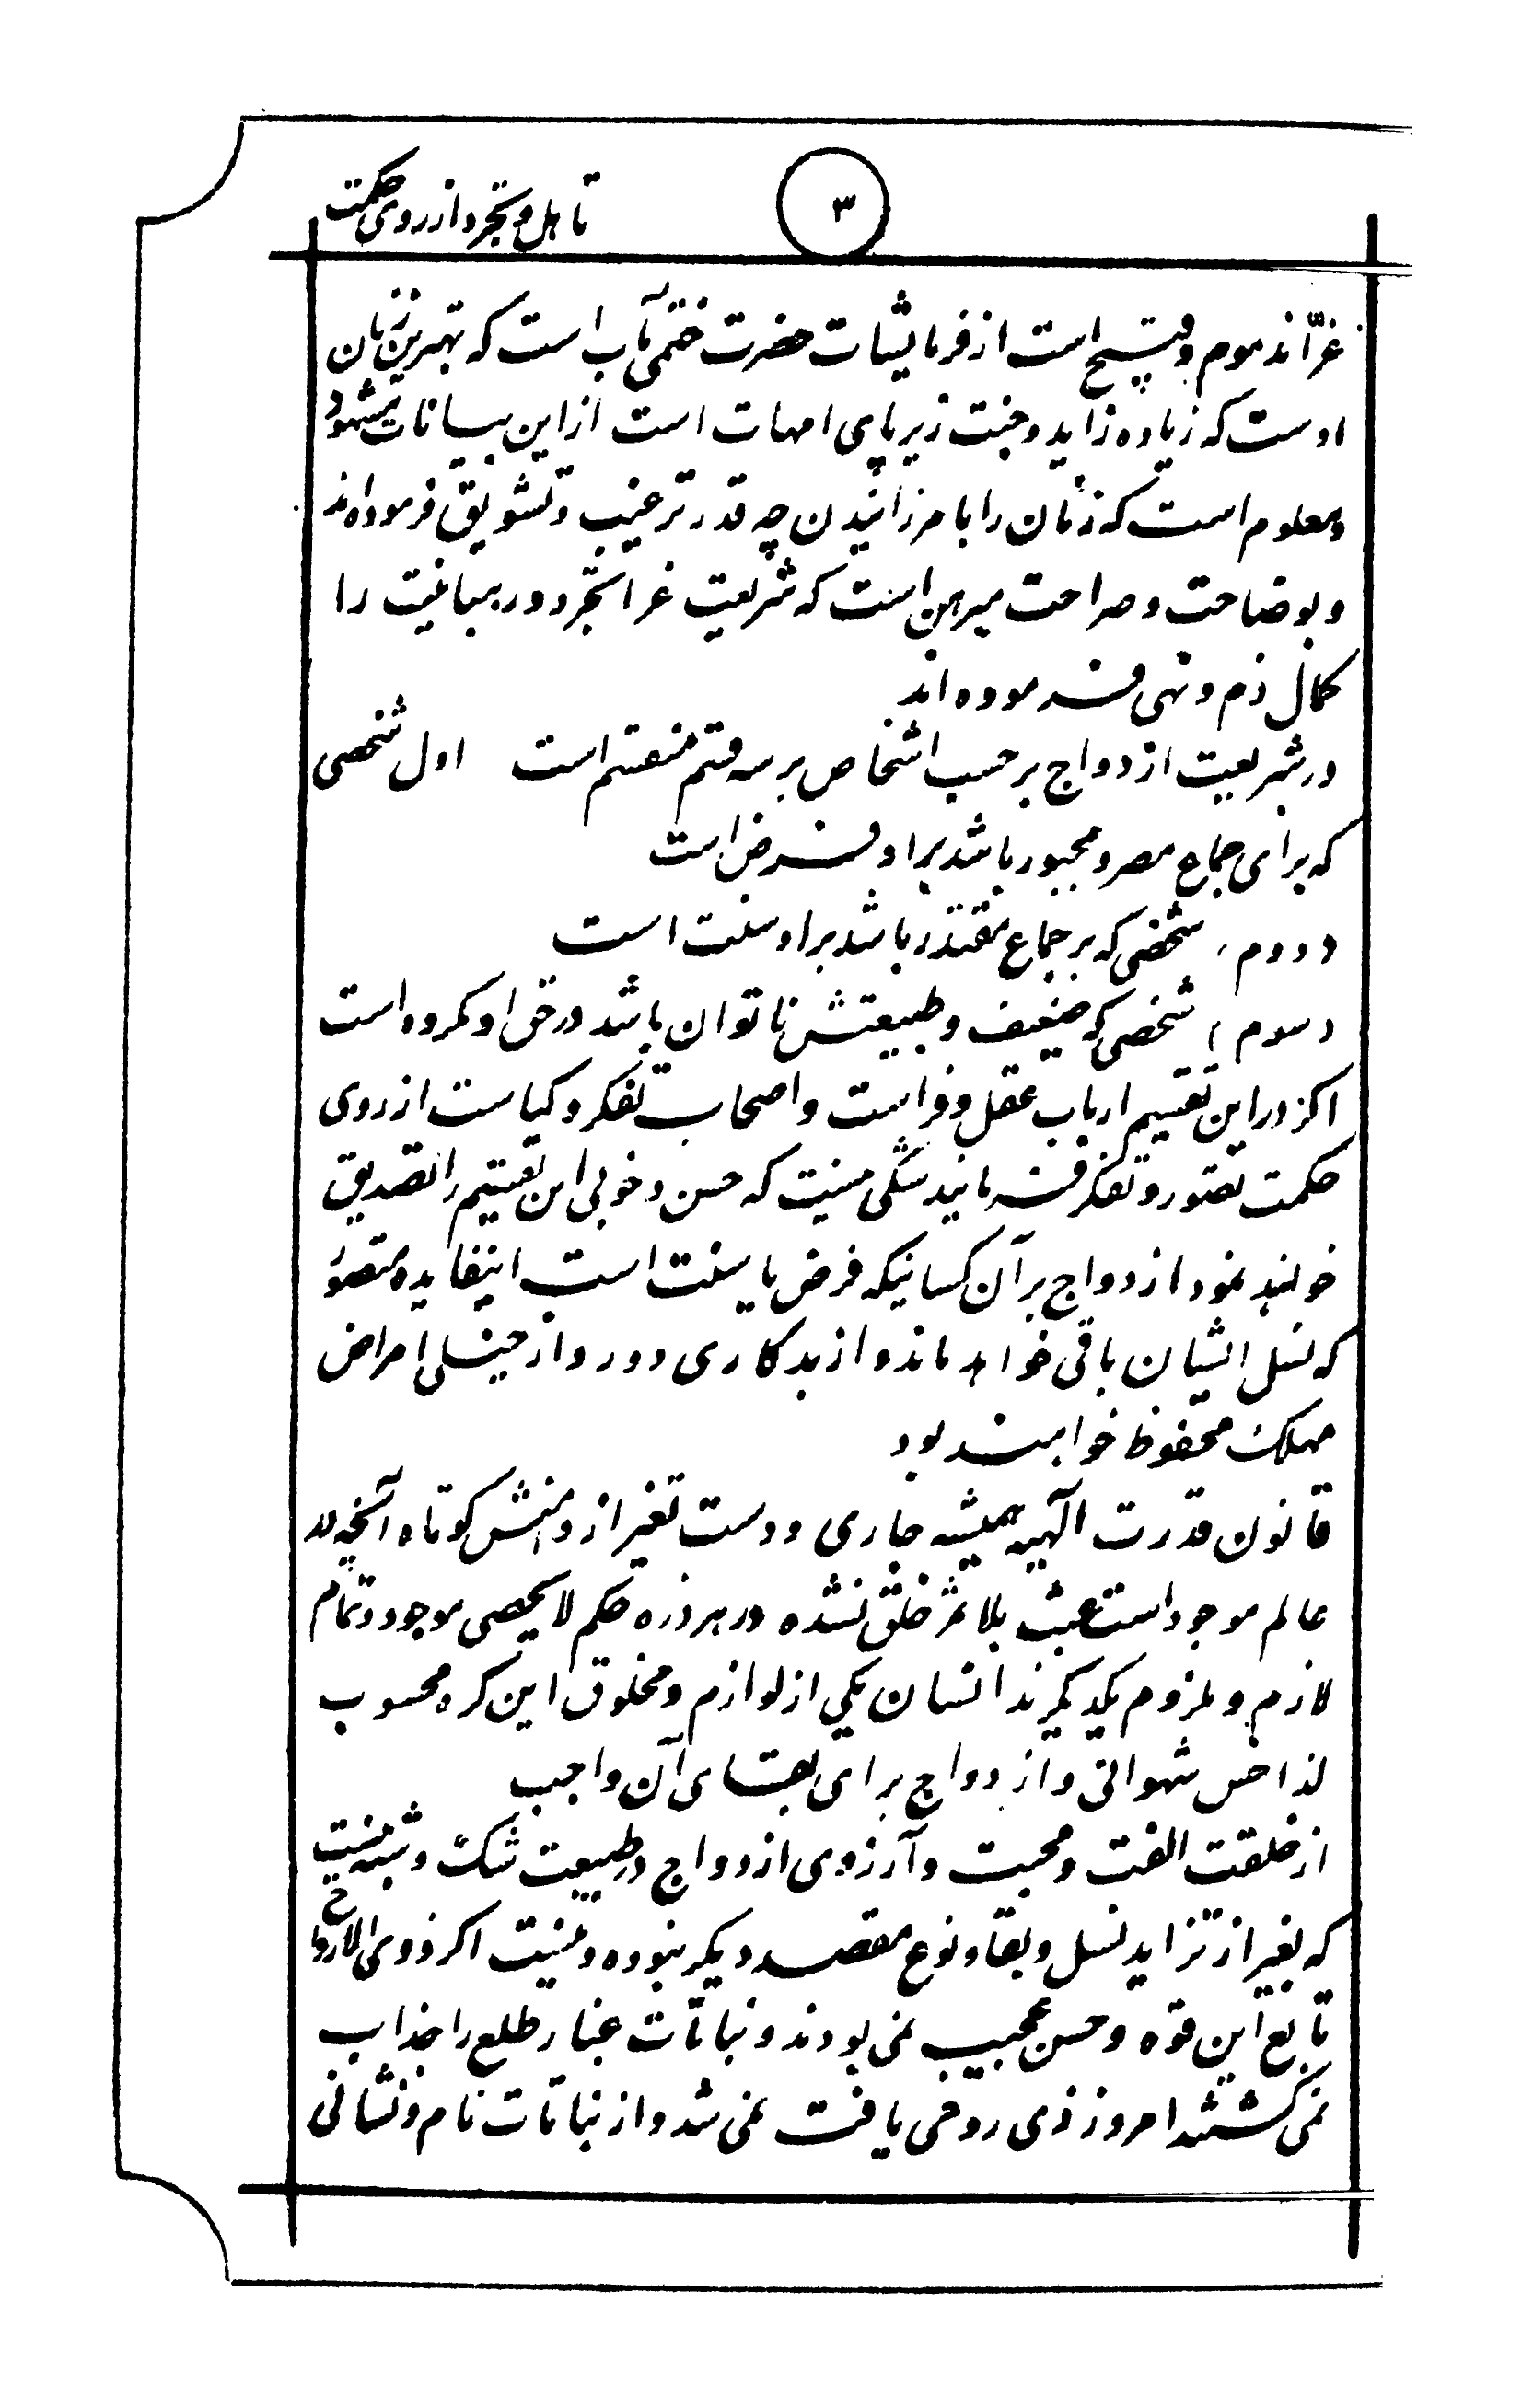 ۳
تاهل و تجرد از روی حکمت
غرّا مذموم و قبیح است از فرمایشات حضرت ختمی مآب است که بهترین زنان
اوست که زیاده زاید و جنت زیر پای امهات است ازاین بیانات مشهود
و معلوم است که زنان را بامر زائیدن چه قدر ترغیب و تشویق فرموده‌اند
و بوضاحت و صراحت مبرهن است که شریعت غرا تجرد و رهبانیت را
کمال ذم و نهی فرموده اند
در شریعت ازدواج بر حسب اشخاص بر سه قسم منقسم است اول شخصی
که برای جماع مصر و مجبور باشد براو فرض است
(دوم) شخصی که بر جماع مقتدر باشد براو سنت است
(سوم) شخصی که ضعیف و طبیعتش ناتوان باشد در حق او مکروه است
اکر در این تقسیم ارباب عقل و فراست و اصحاب تفکر و کیاست از روی
حکمت تصور و تفکر فرمایند شکی نیست که حسن و خوبی این تقسیم را تصدیق
خواهند نمود ازدواج بر آن کسانیکه فرض یا سنت است اینفایده متصور
که نسل ایشان باقی خواهد ماند و از بدکاری دور و از خیلی امراض
مهلک محفوظ خواهند بود
قانون قدرت الهیه همیشه جاری و دست تغیر از دامنش کوتاه آنچه در
عالم موجود است عبث بلا ثمر خلق نشده در هر ذره حکم لا یحصی موجود و تمام
لازم و ملزوم یکدیکرند انسان یکی از لوازم و مخلوق این کره محسوب
لذا حس شهوانی و ازدواج برای بقای آن واجب
از خلقت الفت و محبت و آرزوی ازدواج در طبیعت شک و شبه نیست
که بغیر از تزاید نسل و بقاء نوع مقصد دیکر نبوده و نیست اکر ذوی الارواح
تابع این قوه و حسن عجیب نمی بودند و نباتات غبار طلع را جذاب
نمی کشتند امروز ذی روحی یافت نمی شد و از نباتات نام و نشانی